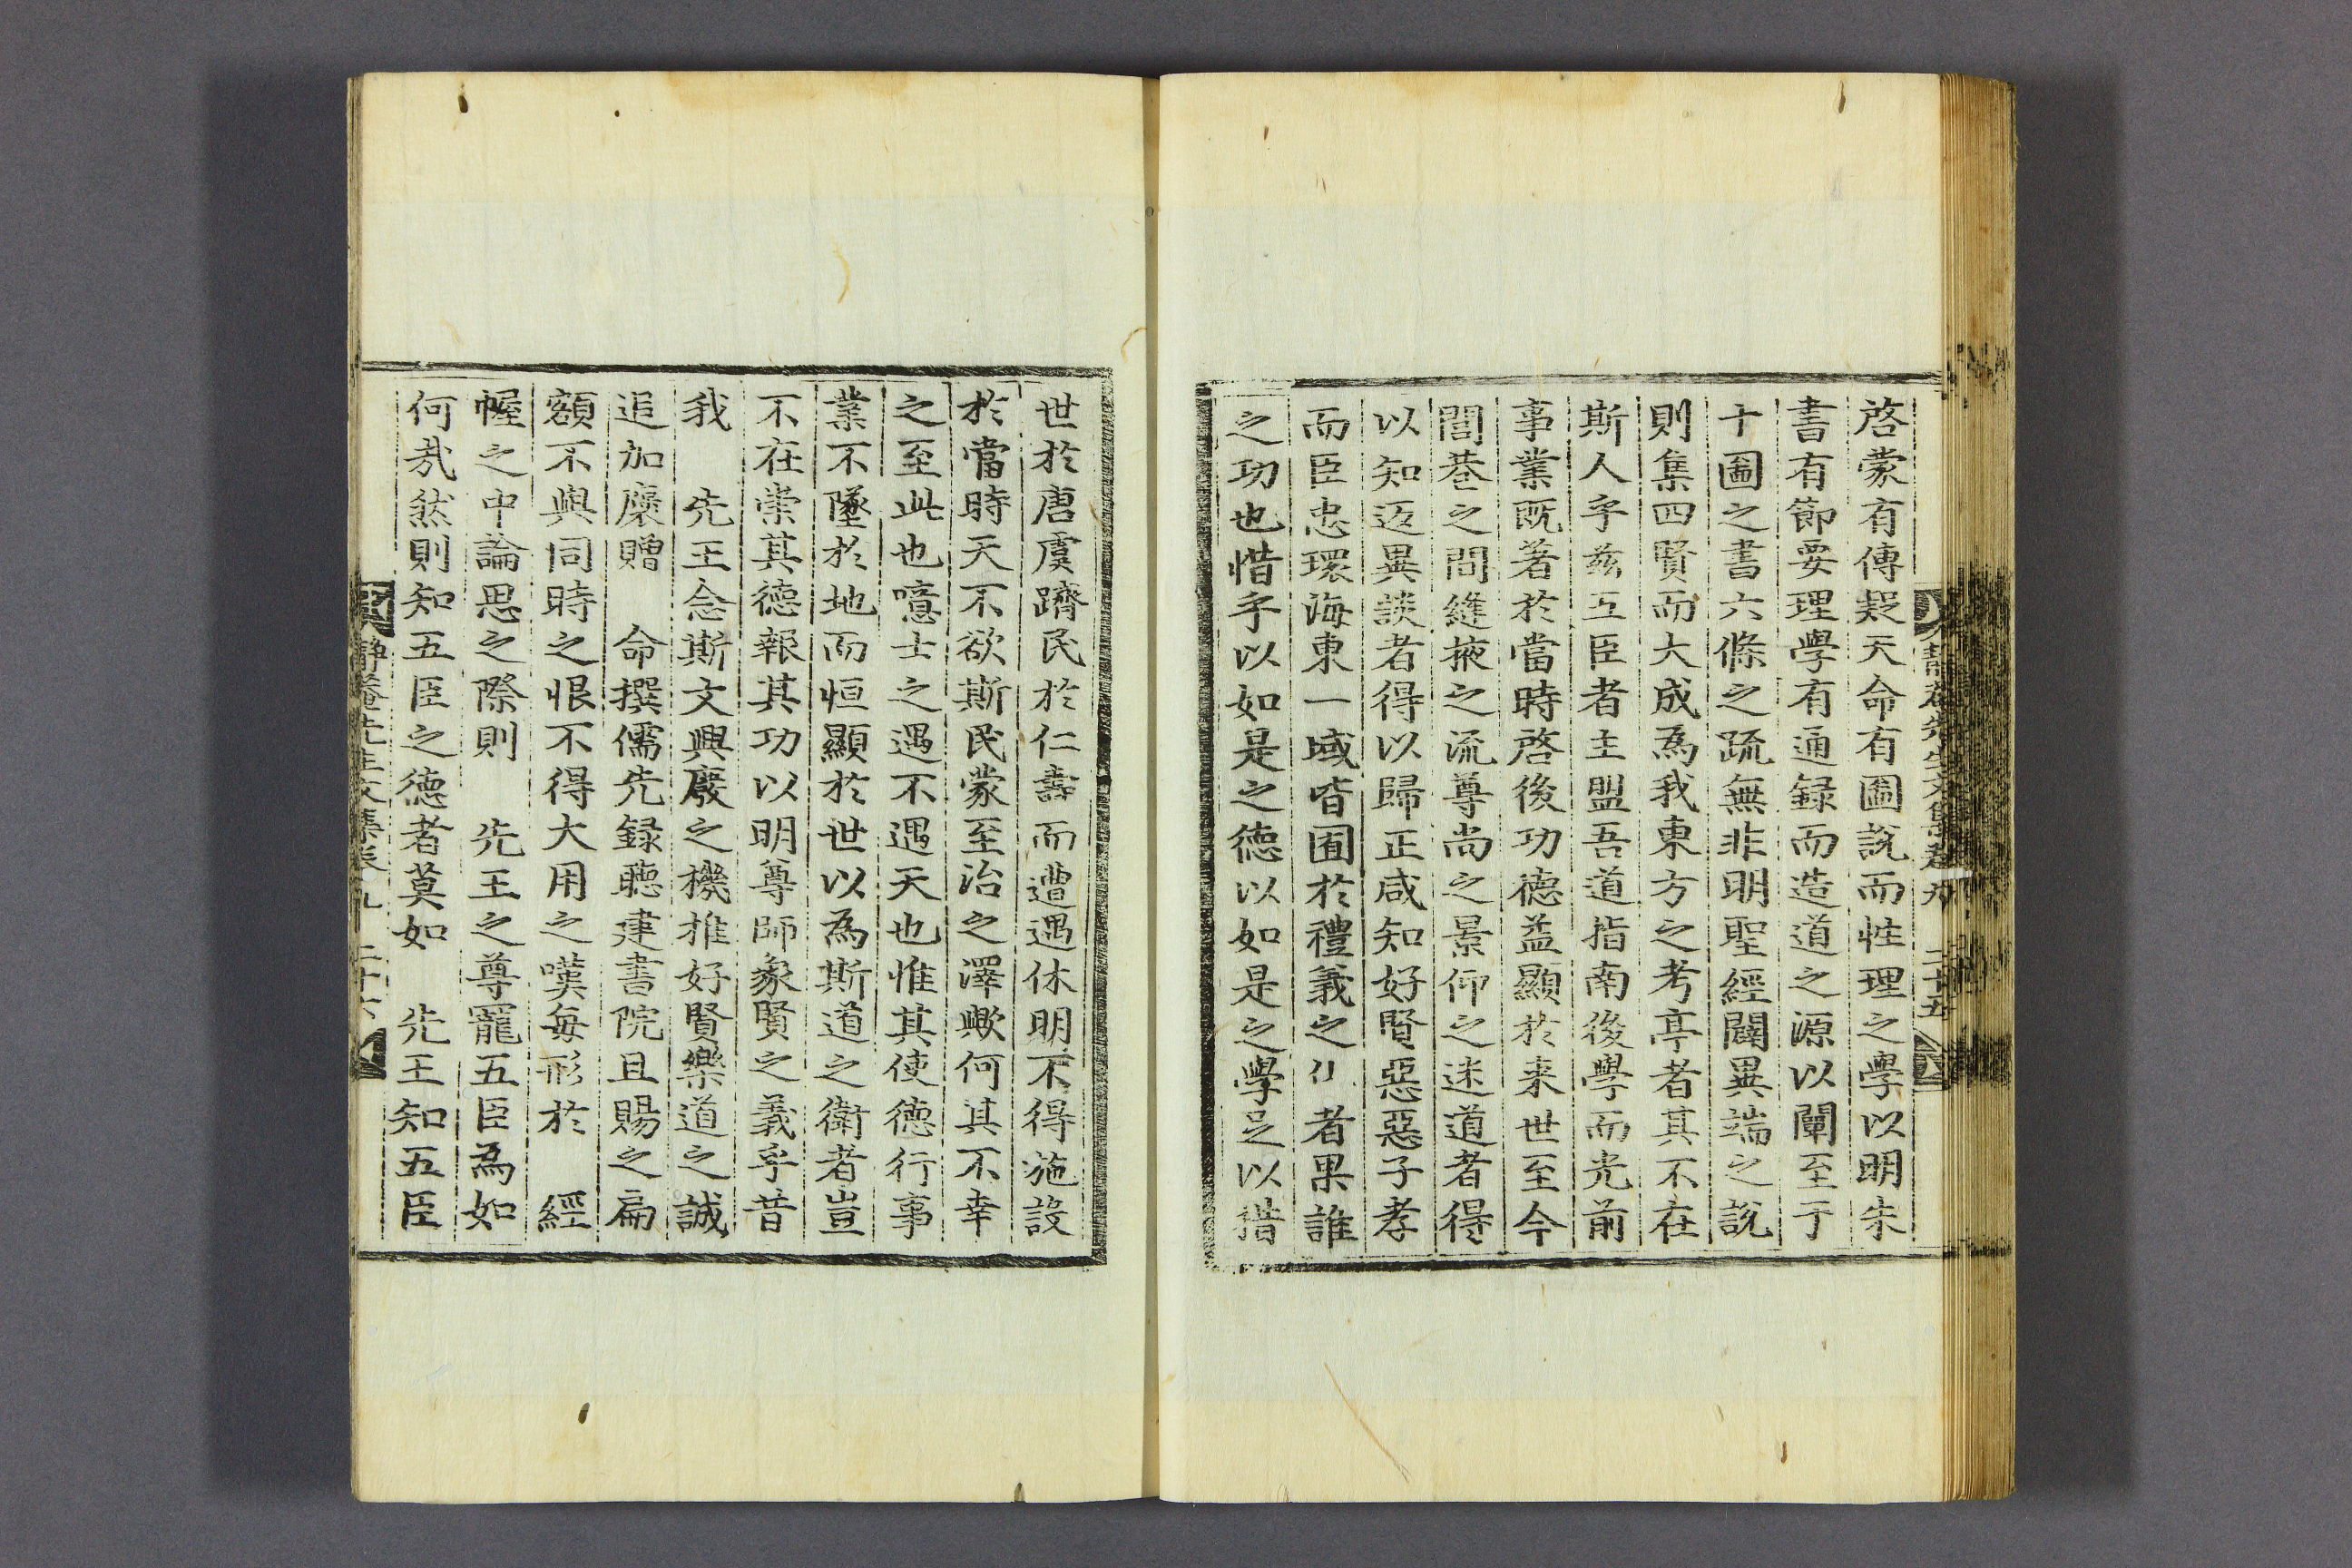 靜菴先生文集卷九 二十五
啓蒙有傳疑天命有圖說而性理之學以明朱
書有節要理學有通録而造道之源以闡至于
十圖之書六條之疏無非明聖經闢異端之說
則集四賢而大成爲我東方之考亭者其不在
斯人乎兹五臣者主盟吾道指南後學而光前
事業既著於當時啓後功德益顯於來世至今
閭巷之間縫掖之流尊尚之景仰之迷道者得
以知返異談者得以歸正咸知好賢惡惡子孝
而臣忠環海東一域皆囿於禮義之 者果誰
之功也惜乎以如是之德以如是之學足以措
世於唐虞躋民於仁壽而遭遇休明不得施設
於當時天不欲斯民蒙至治之澤歟何其不幸
之至此也噫士之遇不遇天也惟其使德行事
業不墜於地而恒顯於世以爲斯道之衛者豈
不在崇其德報其功以明尊師象賢之義乎昔
我 先王念斯文興廢之機推好賢樂道之誠
追加褒贈 命撰儒先録聽建書院且賜之扁
額不與同時之恨不得大用之嘆每形於 經
幄之中論思之際則 先王之尊寵五臣爲如
何哉然則知五臣之德者莫如 先王知五臣
靜菴先生文集卷九 二十六